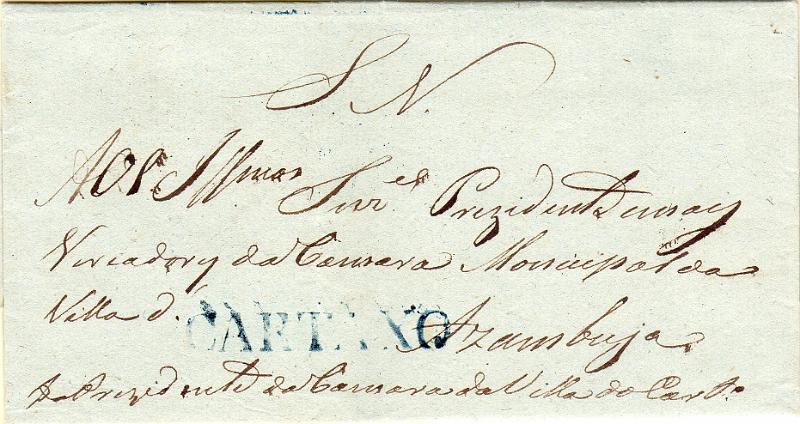 S. N.
Aos Illmos Snres Prezidente e mais
Vereadores da Camara Monicipal da
Villa d'Azambuja
CARTAXO
Do Prezidente da Camara da Villa do Cart.o